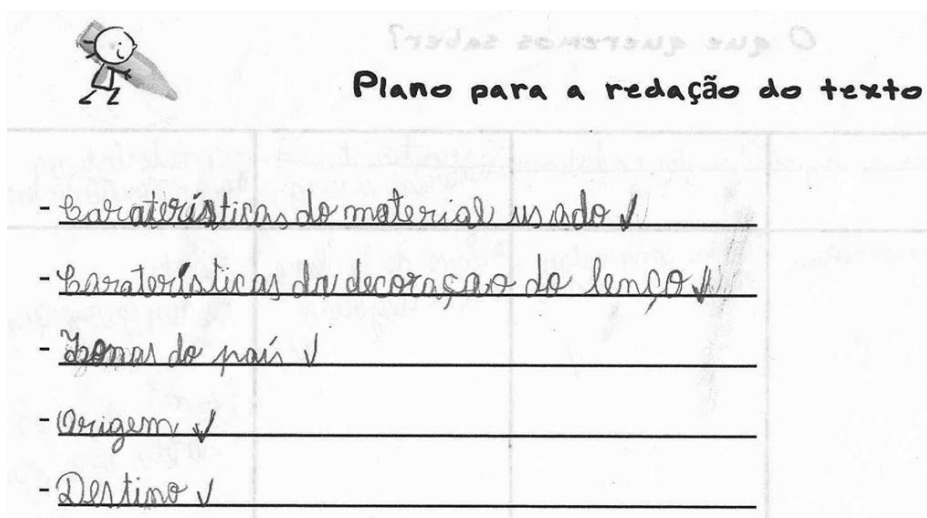 O que queremos saber?
Plano para a redação do texto
- Caraterísticas do material usado ✓
- Caraterísticas da decoração do lenço ✓
- Zonas do país ✓
- Origem ✓
- Destino ✓